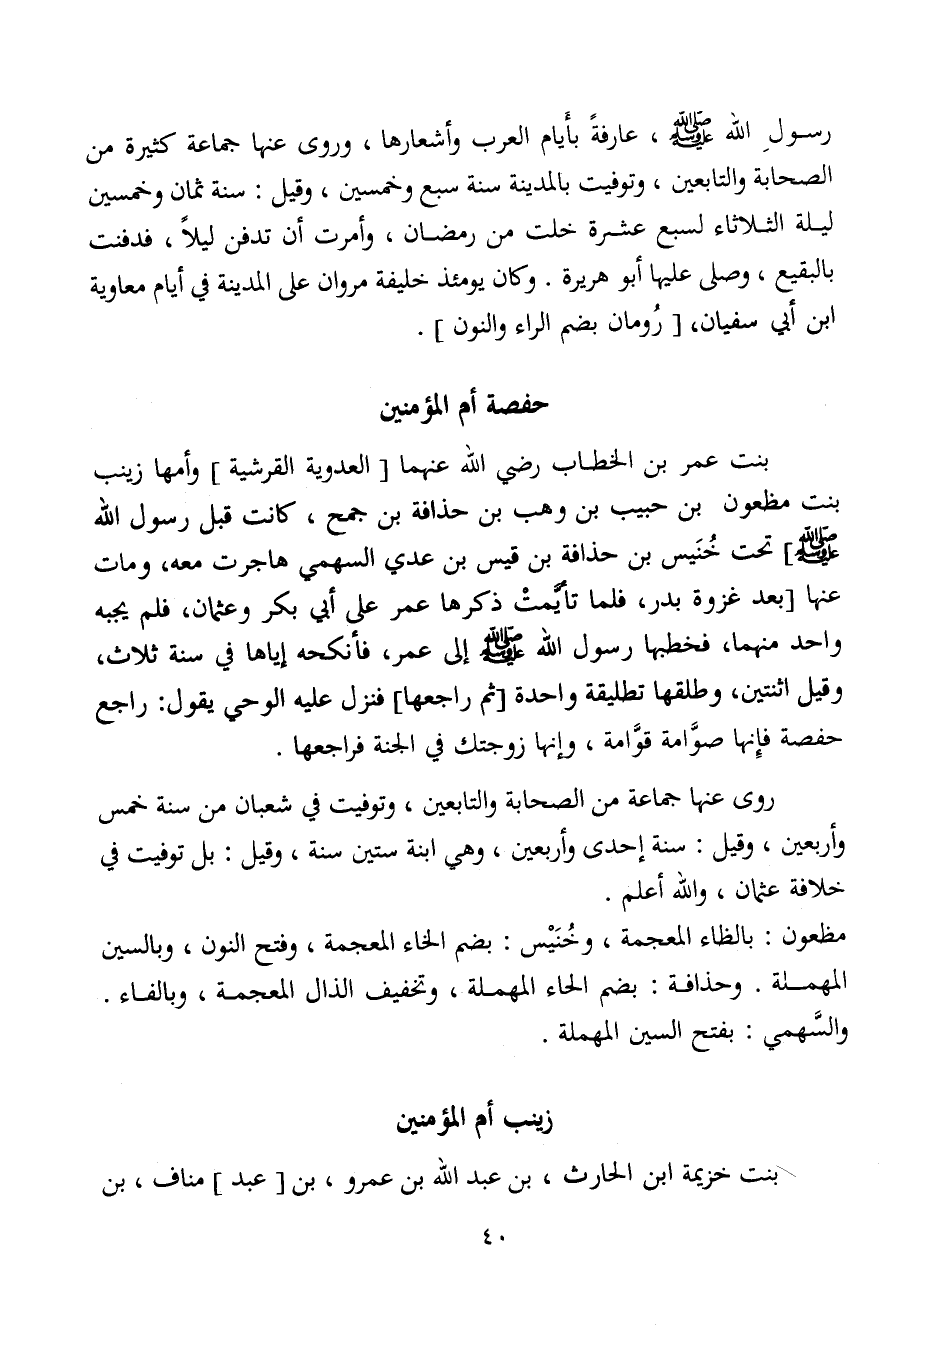 رسول الله ﷺ ، عارفةً بأَيام العرب وأشعارها ، وروى عنها جماعة كثيرة من
الصحابة والتابعين ، وتوفيت بالمدينة سنة سبع وخمسين ، وقيل : سنة ثمان وخمسين
ليلة الثلاثاء لسبع عشرة خلت من رمضان ، وأمرت أن تدفن ليلاً ، فدفنت
بالبقيع ، وصلى عليها أبو هريرة . وكان يومئذ خليفة مروان على المدينة في أيام معاوية
ابن أبي سفيان، [ رُومان بضم الراء والنون ] .
حفصة أم المؤمنين
بنت عمر بن الخطاب رضي الله عنهما [ العدوية القرشية ] وأمها زينب
بنت مظعون بن حبيب بن وهب بن حذافة بن جمح ، كانت قبل رسول الله
ﷺ] تحت خُنَيس بن حذافة بن قيس بن عدي السهمي هاجرت معه، ومات
عنها [بعد غزوة بدر، فلما تأيَّمتْ ذكرها عمر على أبي بكر وعثمان، فلم يجبه
واحد منهما، فخطبها رسول الله ﷺ إلى عمر، فأنكحه إياها في سنة ثلاث،
وقيل اثنتين، وطلقها تطليقة واحدة [ثم راجعها] فنزل عليه الوحي يقول: راجع
حفصة فإنها صوَّامة قوَّامة ، وإنها زوجتك في الجنة فراجعها .
روى عنها جماعة من الصحابة والتابعين ، وتوفيت في شعبان من سنة خمس
وأربعين ، وقيل : سنة إحدى وأربعين ، وهي ابنة ستين سنة ، وقيل : بل توفيت في
خلافة عثمان ، والله أعلم .
مظعون : بالظاء المعجمة ، وخُنَيْس : بضم الخاء المعجمة ، وفتح النون ، وبالسين
المهملة . وحذافة : بضم الحاء المهملة ، وتخفيف الذال المعجمة ، وبالفاء .
والسَّهمي : بفتح السين المهملة .
زينب أم المؤمنين
بنت خزيمة ابن الحارث ، بن عبد الله بن عمرو ، بن [ عبد ] مناف ، بن
٤٠